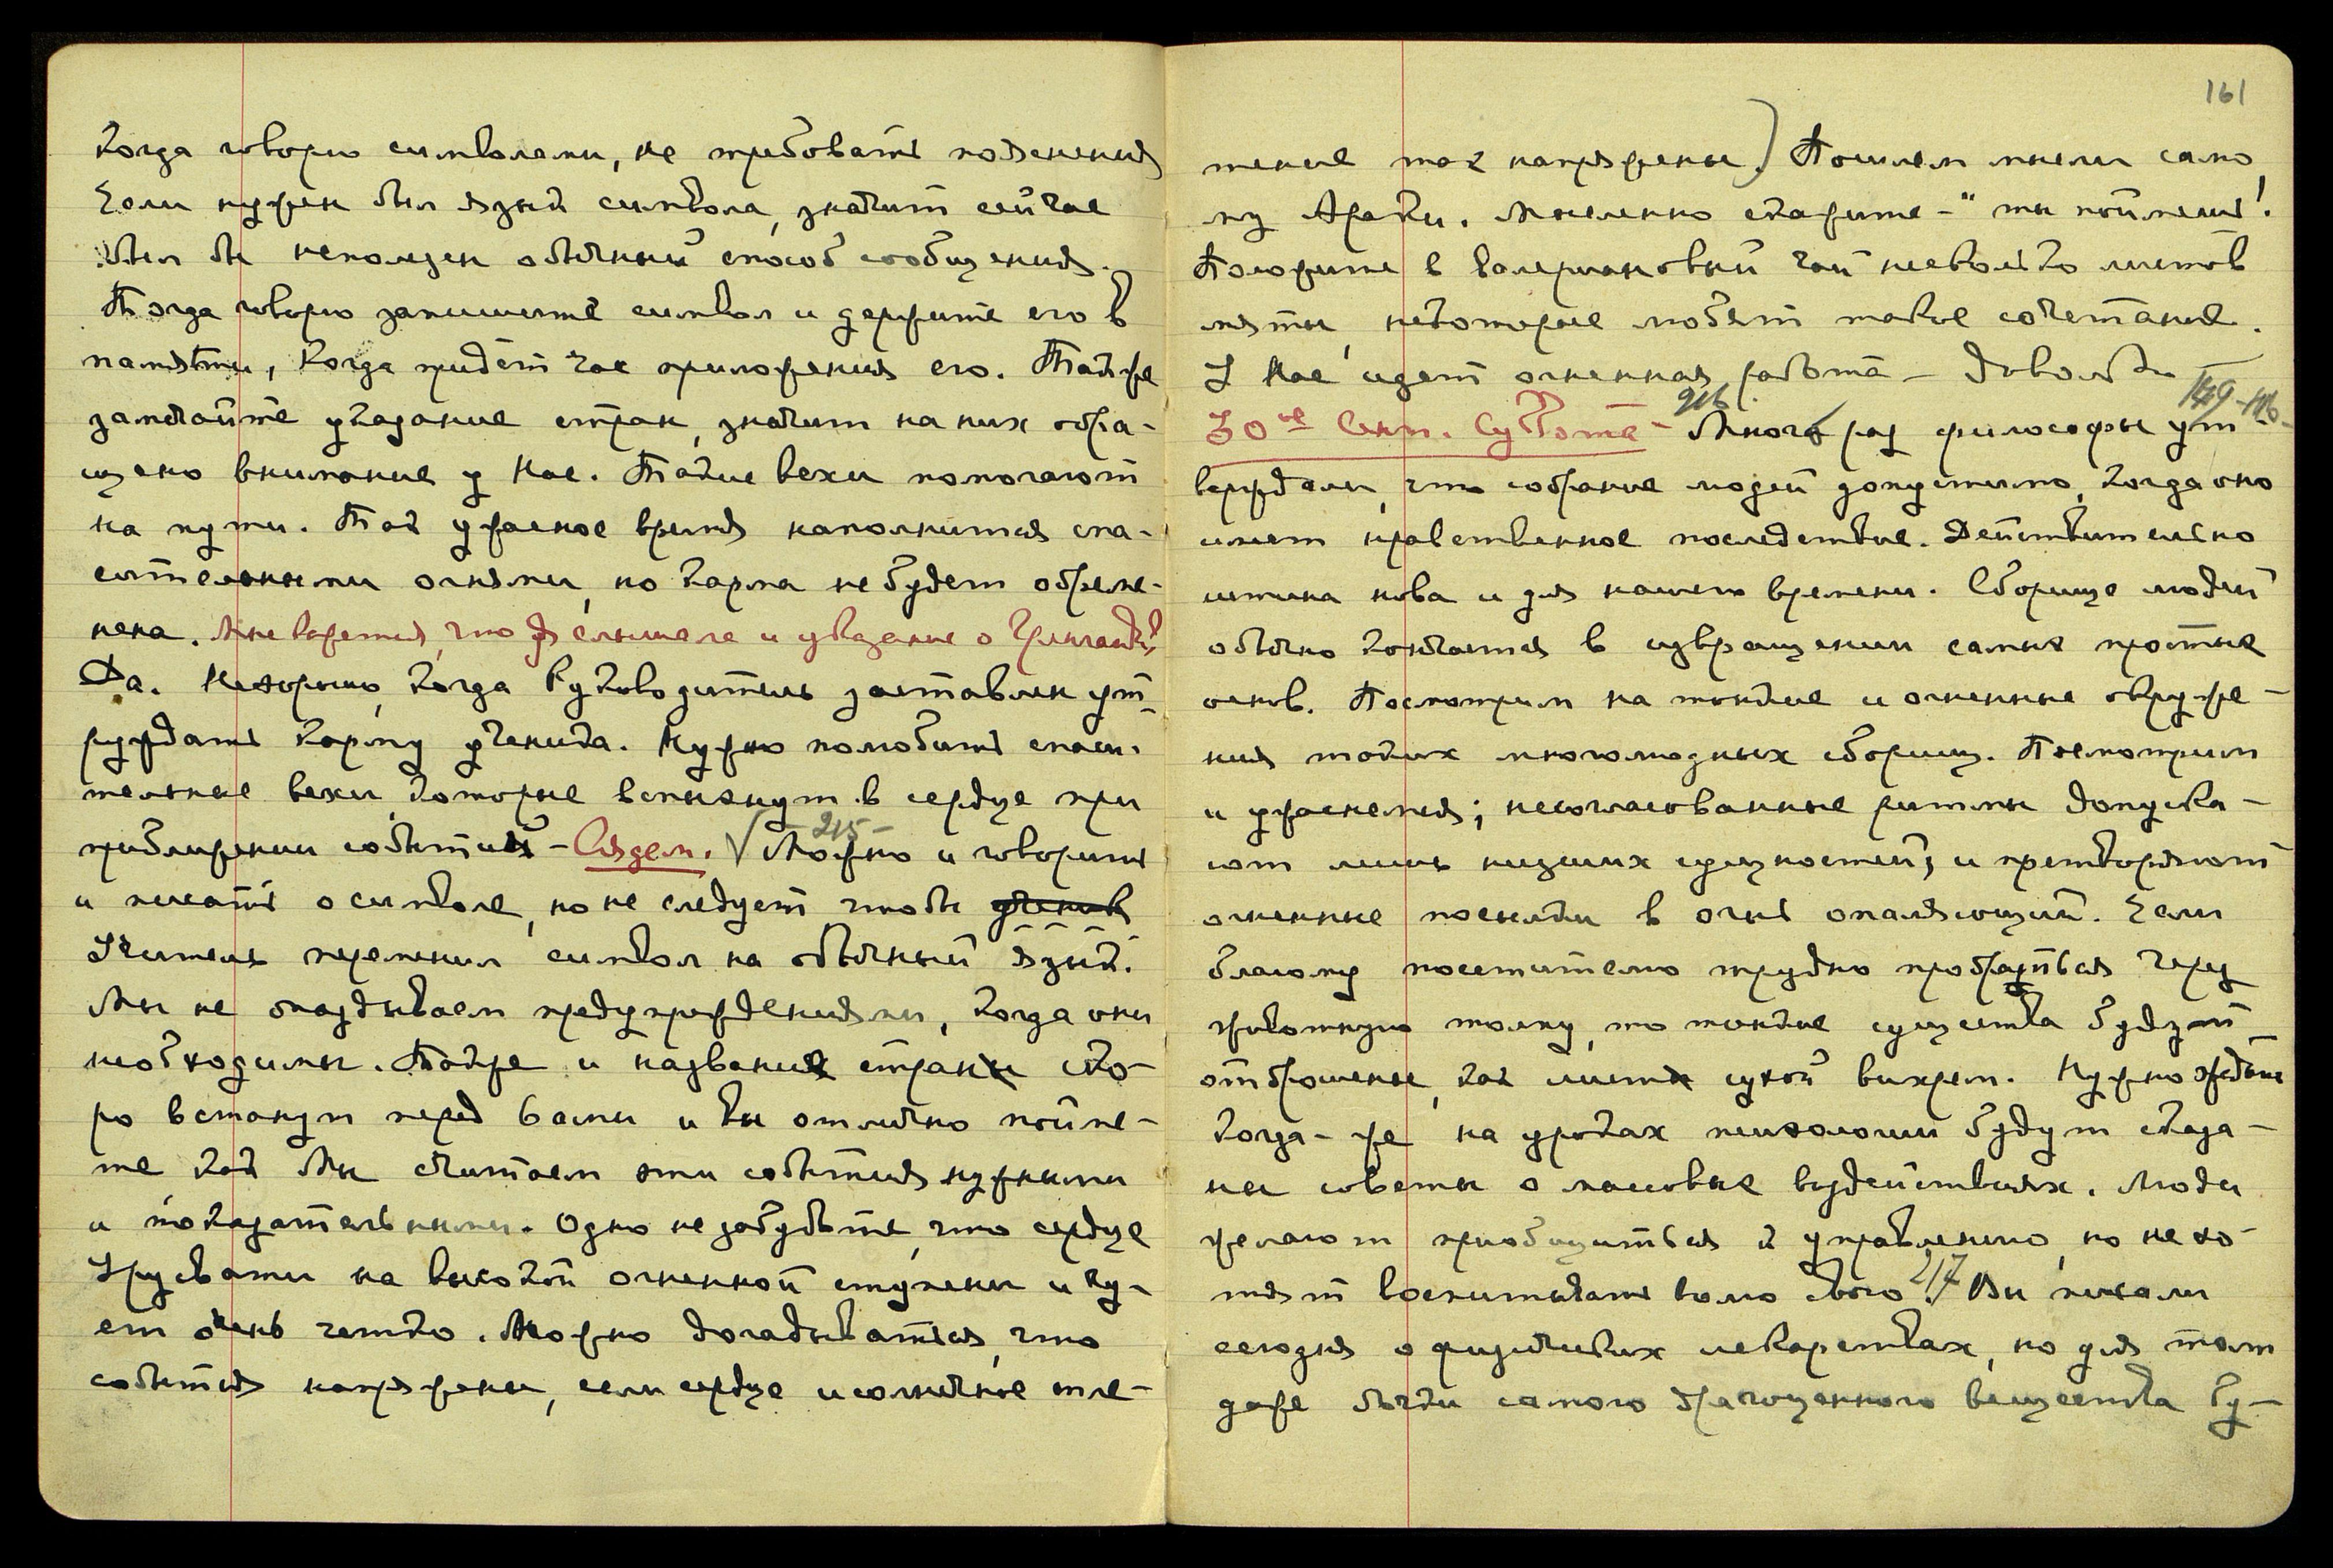 когда говорю символами, не требовать пояснения
Если нужен был язык символа, значит сейчас
был бы неполезен обычный способ сообщения.
Когда говорю запишите символ и держите его в
памяти, когда придёт час приложения его. Также
замечайте указание стран, значит на них обра-
щено внимание у Нас. Такие вехи помогают
на пути. Так ужасное время наполнится спа-
сительными огнями, но карма не будет обреме-
нена. Мне кажется, что я слышала и указание о
Да. Нехорошо, когда Руководитель заставлен ут-
руждать карму ученика. Нужно полюбить спаси-
тельные вехи, которые вспыхнут в сердце при
приближении событий - Сядем. √ - 215 - Можно и говорить
и писать о символе, но не следует чтобы ученик
Учитель переменил символ на обычный язык.
Мы не опаздываем предупреждениями, когда они
необходимы. Также и названия стран ско-
ро встанут перед вами и вы отлично пойме-
те как Мы считаем эти события нужными
и показательными. Одно не забудьте, что сердце
Урусвати на высокой огненной ступени и чу-
ет очень четко. Можно догадываться, что
события напряжены, если сердце и солнечное спле-
161
тение так напряжены.) Пошлем мысли само
му Араки. Мысленно скажите - "ты поймешь!
Положите в валериановый чай несколько листов
мяты, некоторые любят такое сочетание.
У Нас идет огненная работа - Довольно -
30ое Сент. Суббота - 216 Много раз философы ут 149-146-
верждали, что собрание людей допустимо, когда оно
имеет нравственное последствие. Действительно
истина нова и для нашего времени. Сборище людей
обычно кончается в извращении самых простых
основ. Посмотрим на тонкие и огненные окруже-
ния таких многолюдных сборищ. Посмотрим
и ужаснемся; несогласованные ритмы допуска-
ют лишь низших сущностей, и претворяют
огненные посылки в огнь опаляющий. Если
благому посетителю трудно пробраться через
животную толпу, то тонкие существа будут
отброшены, как листы сухой вихрем. Нужно ждать
когда-же на уроках психологии будут сказа-
ны советы о массовые воздействиях. Люди
желают приобщиться к управлению, но не хо-
тят воспитывать волю свою. 217 Вы писали
сегодня о физических лекарствах, но для толп
даже бочки самого драгоценного вещества бу-